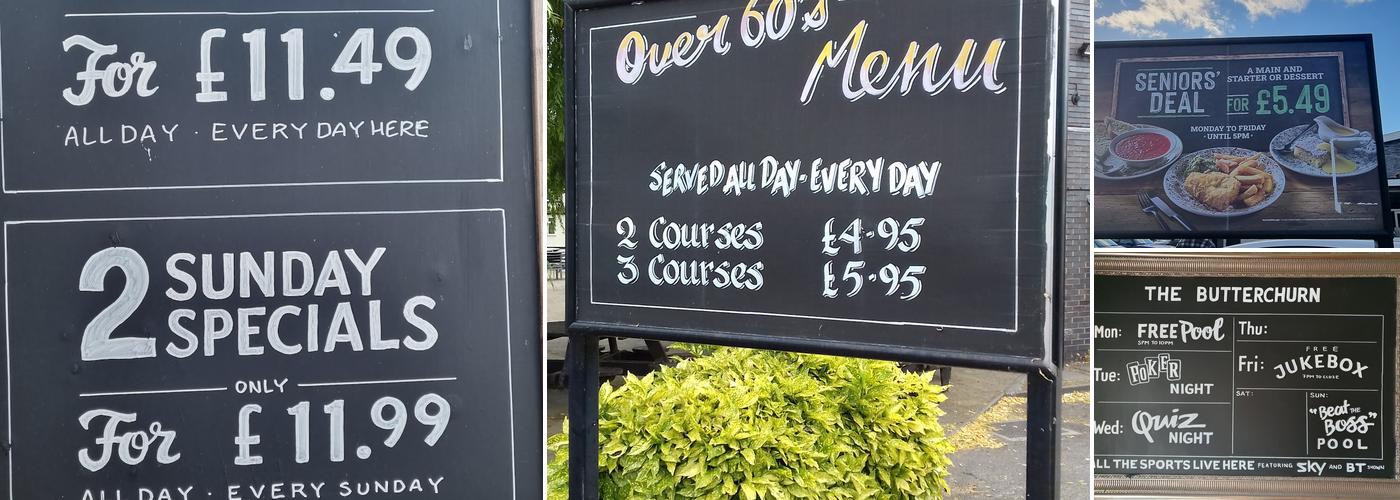 For £11.49
ALL DAY · EVERY DAY HERE
2 SUNDAY
SPECIALS
ONLY
For £11.99
ALL DAY · EVERY SUNDAY
Over 60's
Menu
SERVED ALL DAY · EVERY DAY
2 Courses £4·95
3 Courses £5·95
SENIORS'
DEAL
A MAIN AND
STARTER OR DESSERT
FOR £5.49
MONDAY TO FRIDAY
· UNTIL 5PM ·
THE BUTTERCHURN
Mon: FREE Pool
5PM TO 10PM
Tue: POKER
NIGHT
Wed: Quiz
NIGHT
Thu:
Fri: FREE
JUKEBOX
7PM TO CLOSE
SAT:
SUN:
"Beat THE
Boss"
POOL
ALL THE SPORTS LIVE HERE FEATURING SKY AND BT SHOWN